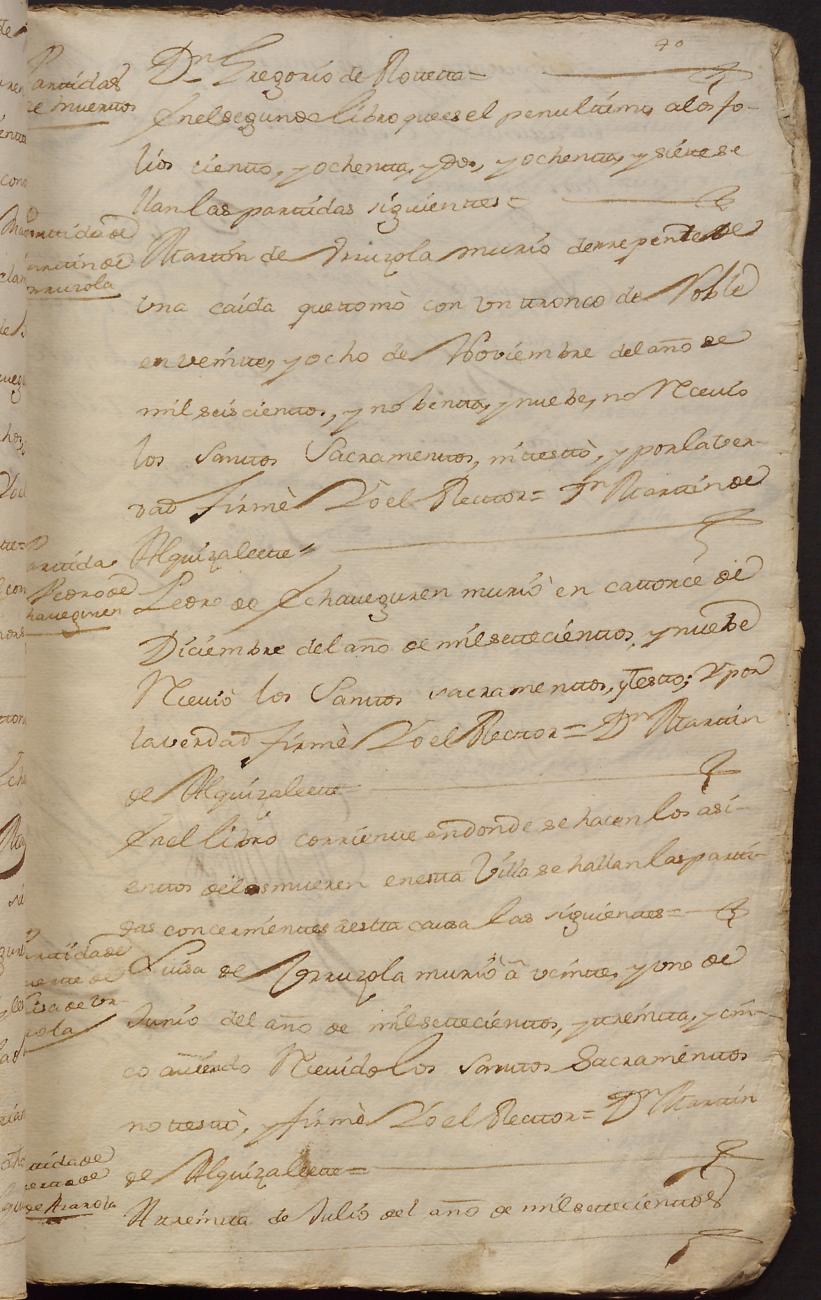 40
Partidas
de muertos
Dn Gregorio de Rotteta =
En el segundo libro que es el penultimo, a los fo-
lios ciento, y ochenta, y dos, y ochenta, y siete se
llan las partidas siguientes =
Partida de
Martin de
Yrruzola
Martin de Yrruzola murio de rrepente de
una caida que tomò con un tronco de Roble
en veinte, y ocho de Noviembre del año de
mil seiscientos, y nobenta, y nuebe, no Recivio
los Santos Sacramentos, ni testò, y por la ver-
dad firmè Yo el Rector = Dn Martin de
Alquizalecte =
Partida
Pedro de
Echaveguren
Pedro de Echaveguren murio en cattorce de
Diciembre del año de mil settecientos, y nuebe
Recivio los Santos sacramentos, y testo; y por
la verdad firmè Yo el Rector = Dn Martin
de Alquizalecte
En el libro corriente en donde se hacen los asi-
entos de los mueren en esta Villa se hallan las parti-
das concernientes a esta causa las siguientes =
Partida de
muerte de
Luisa de Yr-
ruzola
Luisa de Yrruzola murio à veinte, y uno de
Junio del año de mil settecientos, y treinta, y cin-
co aviendo Recivido los santos Sacramentos
no testò, y firmè Yo el Rector = Dn Martin
de Alquizalecte =
Partida de
muerte de
de Aranola
A treinta de Julio del año de mil settecientos